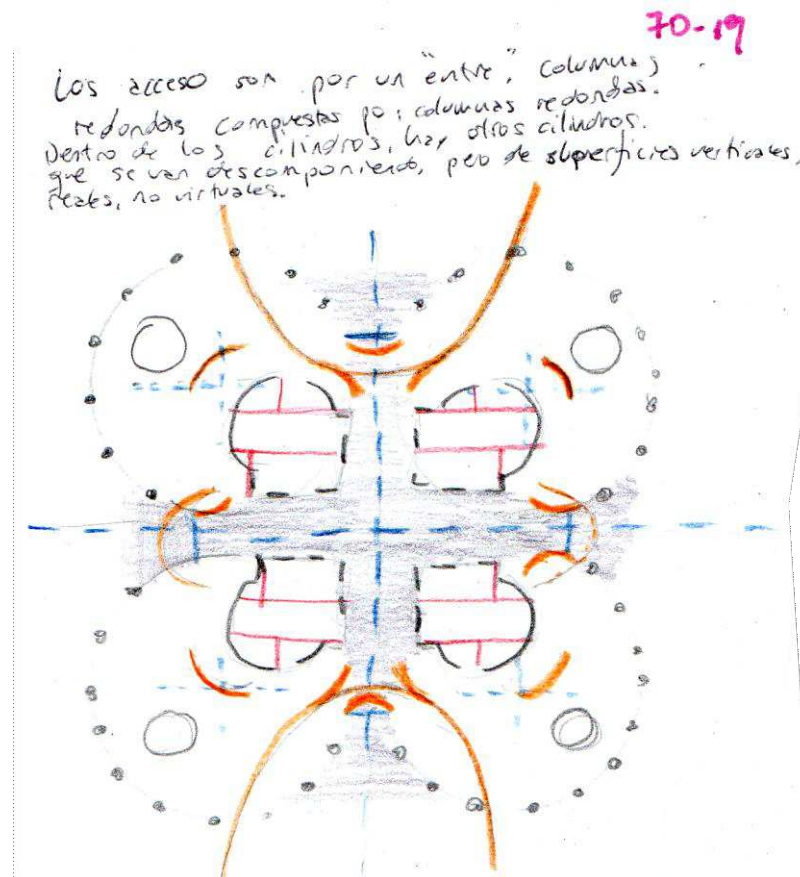 70-19
Los acceso son por un "entre", columnas
redondas compuestas por columnas redondas.
Dentro de los cilindros, hay otros cilindros.
que se van descomponiendo, pero de superficies verticales,
reales, no virtuales.